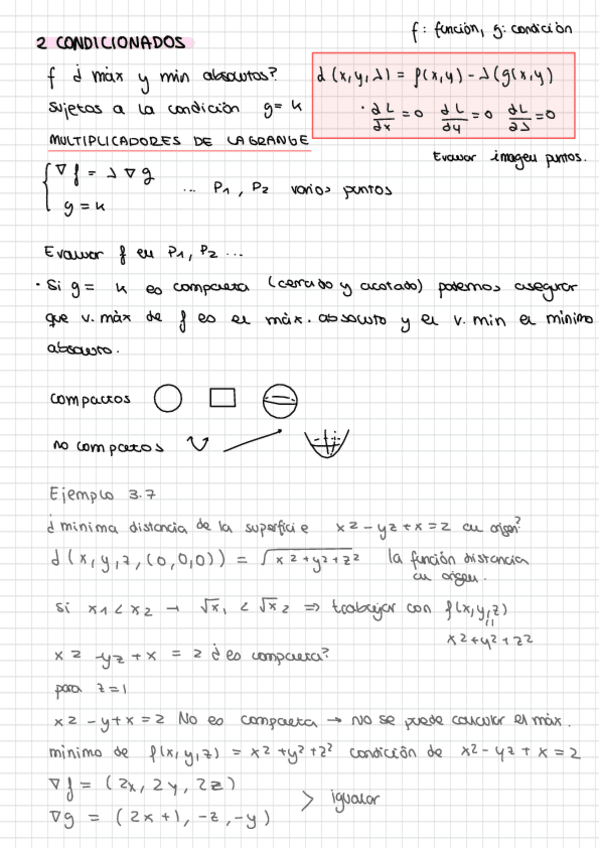 f: función, g: condición
2 CONDICIONADOS
f ¿ máx y min absolutos?
sujetas a la condición g = k
MULTIPLICADORES DE LAGRANGE
L(x,y,λ) = f(x,y) - λ(g(x,y)
· ∂L/∂x = 0 ∂L/∂y = 0 ∂L/∂λ = 0
Evaluar imagen puntos.
∇f = λ∇g
g = k
... P1, P2 varios puntos
Evaluar f en P1, P2 ...
· Si g = k es compacta (cerrado y acotado) podemos asegurar
que v. máx de f es el máx. absoluto y el v. min el mínimo
absoluto.
compactos
no compactos
Ejemplo 3.7
¿mínima distancia de la superficie x² - yz + x = 2 al origen?
d(x,y,z,(0,0,0)) = √x² + y² + z² la función distancia
al origen.
si x1 < x2 → √x1 < √x2 ⇒ trabajar con f(x,y,z)
=
x² + y² + z²
x² - yz + x = 2 ¿es compacta?
para z = 1
x² - y + x = 2 No es compacta → no se puede calcular el máx.
mínimo de f(x,y,z) = x² + y² + z² condición de x² - yz + x = 2
∇f = (2x, 2y, 2z)
∇g = (2x+1, -z, -y)
> igualar